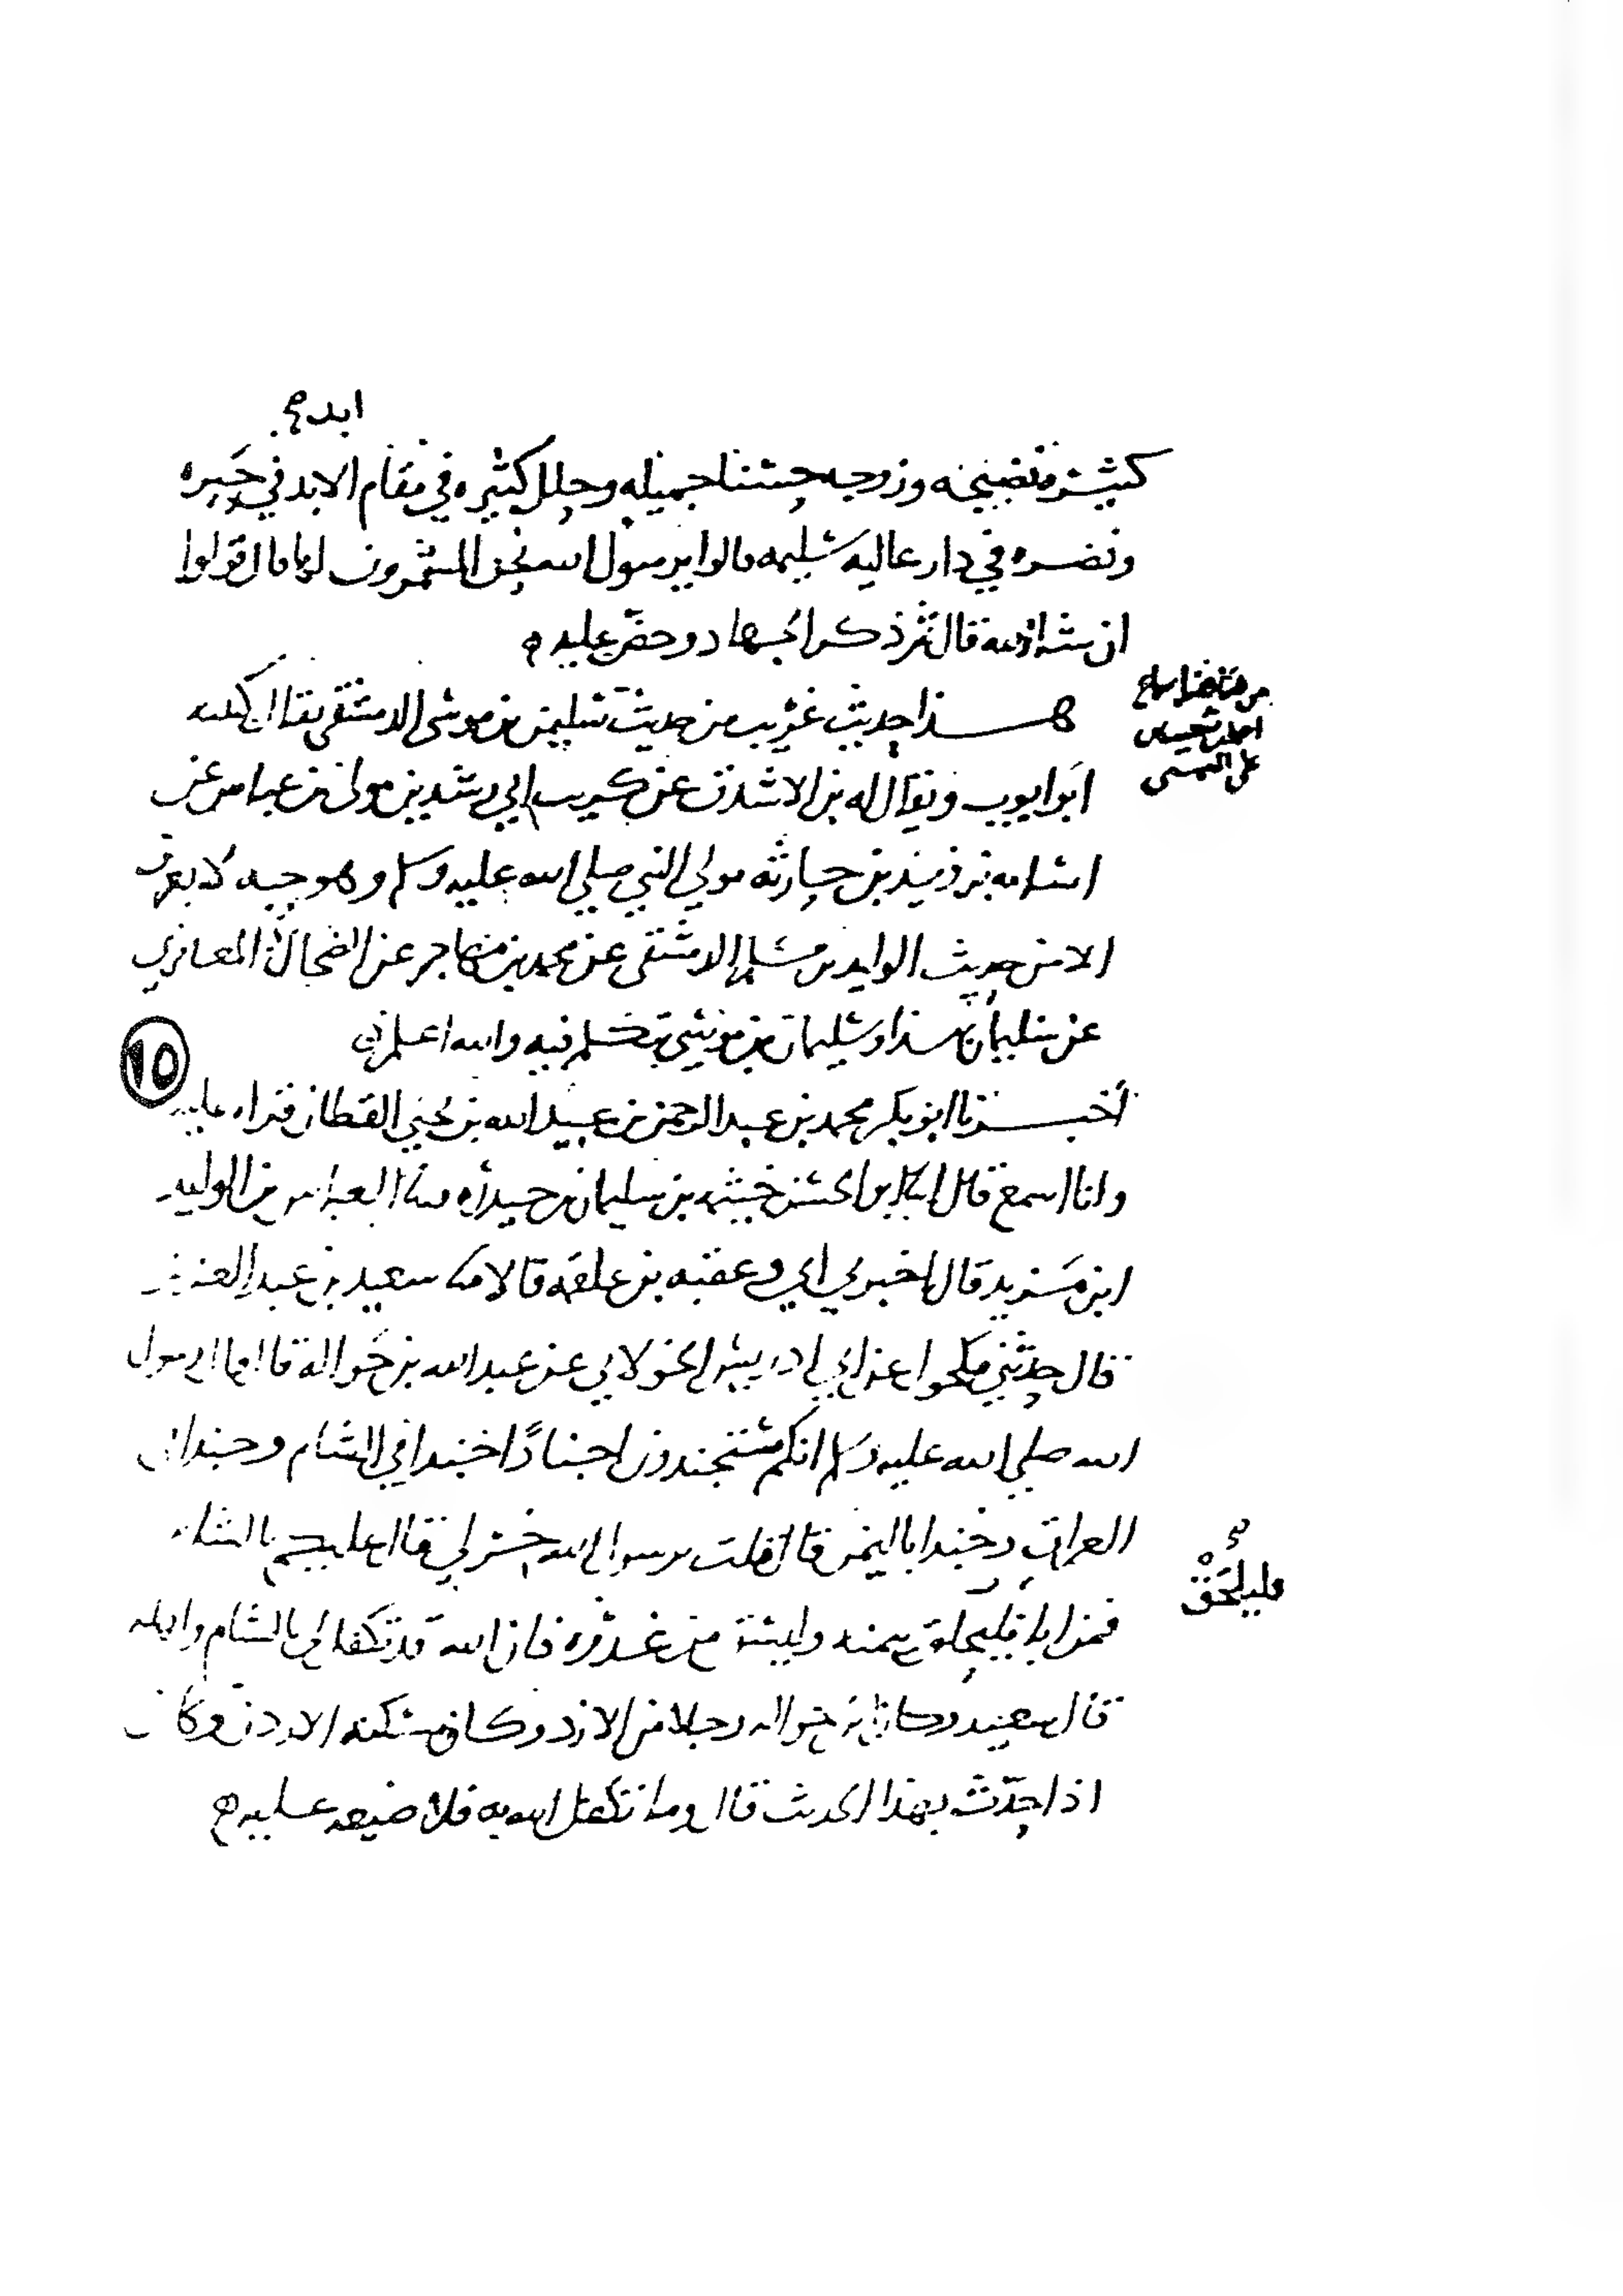 ابدا صح
كثيرة نضيجه وزوجه حسنا جميله وحلل كثيره في مقام الابد في حبره
ونضره في دار عاليه سليمه قالوا يرسول الله نحن المشمرون لها قال قولوا
ان شا الله قال ثم ذكر الجهاد وحض عليه
هذا حديث غريب من حديث سليمن بن موسى الدمشقي يقال كنيته
ابو ايوب ويقال له بن الاشدق عن كريب ابي رشدين مولى بن عباس عن
اسامه بن زيد بن حارثه مولى النبي صلى الله عليه وسلم وهو حبه لا يعرف
الا من حديث الوليد بن مسلم الدمشقي عن محمد بن مهاجر عن الضحاك المعافري
عن سليمان بهذا وسليمان بن موسى تكلم فيه والله اعلم
١٥
أخبرنا ابو بكر محمد بن عبد الرحمن بن عبيد الله بن يحيى القطان قراه عليه
وانا اسمع قال ابنا ابو الحسن خيثمه بن سليمان بن حيدره ثنا العباس بن الوليد
ابن مزيد قال اخبرني ابي وعقبه بن علقمه قالا ثنا سعيد بن عبد العزيز
قال حدثني مكحول عن ابي ادريس الخولاني عن عبد الله بن حواله قال قال رسول
الله صلى الله عليه وسلم انكم ستجندون اجنادًا جندا في الشام وجندا في
العراق وجندا باليمن قال قلت يرسول الله خر لي قال عليكم بالشام
فليلحق
فمن ابا فليلحق بيمنه وليسق من غدره فان الله قد تكفل لي بالشام واهله
قال سعيد وكان بن حواله رجلا من الازد وكان مسكنه الاردن وكان
اذا حدّث بهذا الحديث قال وما تكفل الله به فلا ضيعه عليه